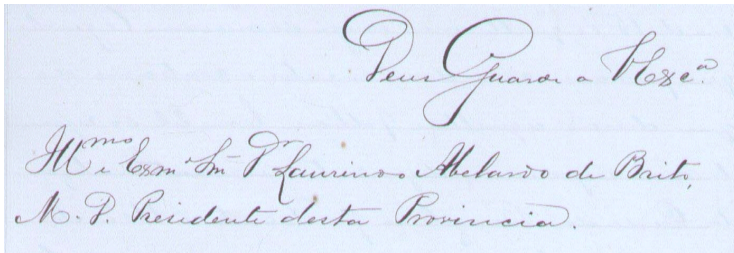 Deus Guarde a V Exc.ª
Ill.mo e Exm. Snr. Dr. Laurindo Abelardo de Brito,
M. D. Presidente desta Provincia.